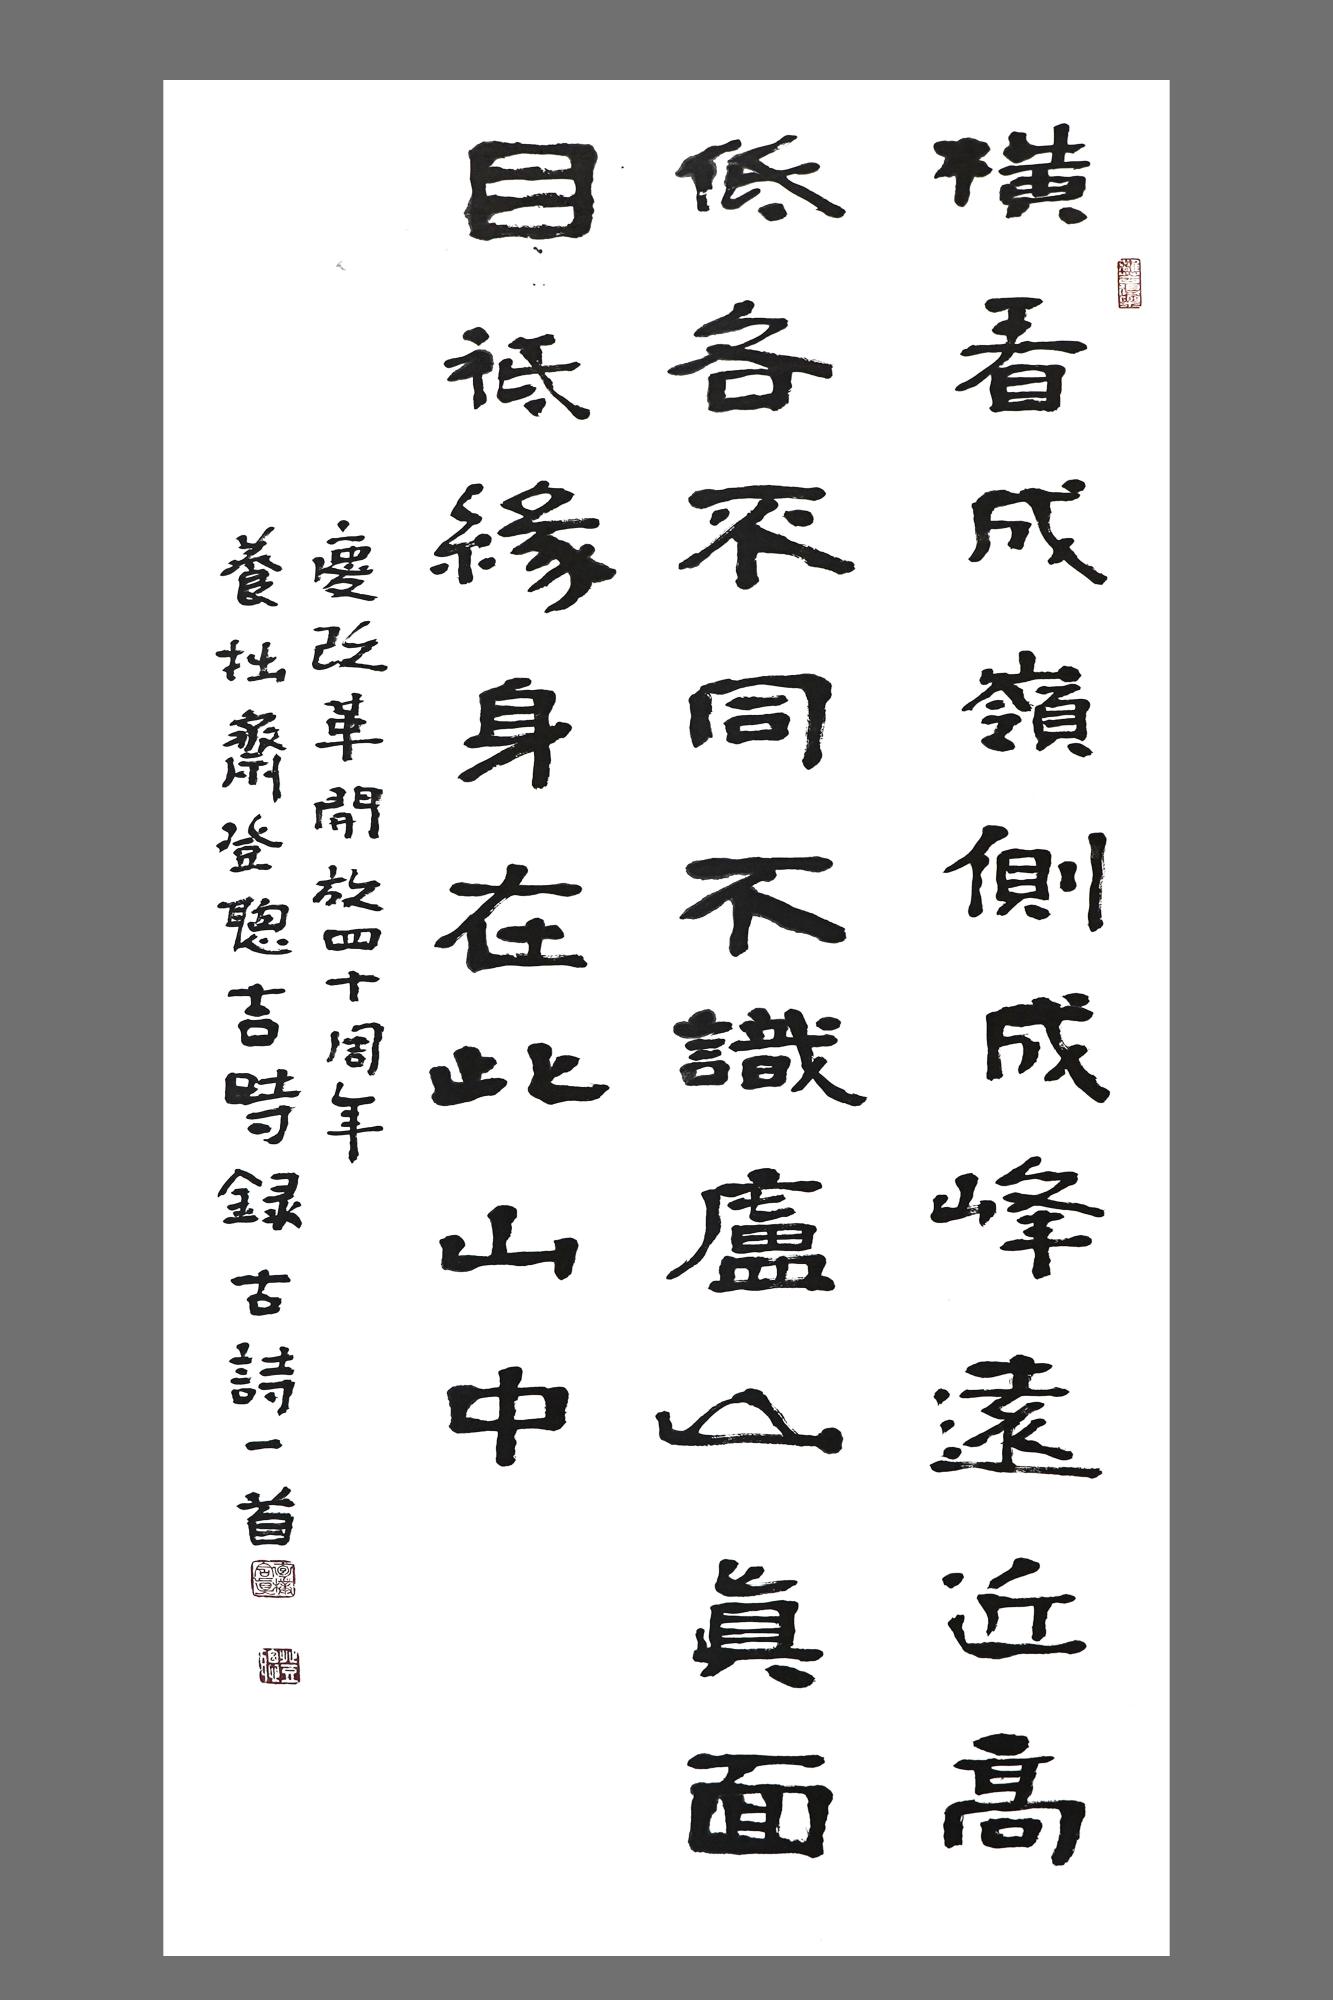 橫看成嶺側成峰遠近高
低各不同不識廬山眞面
目祗緣身在此山中
慶改革開放四十周年
養拙齋登聰吉時録古詩一首
登聰